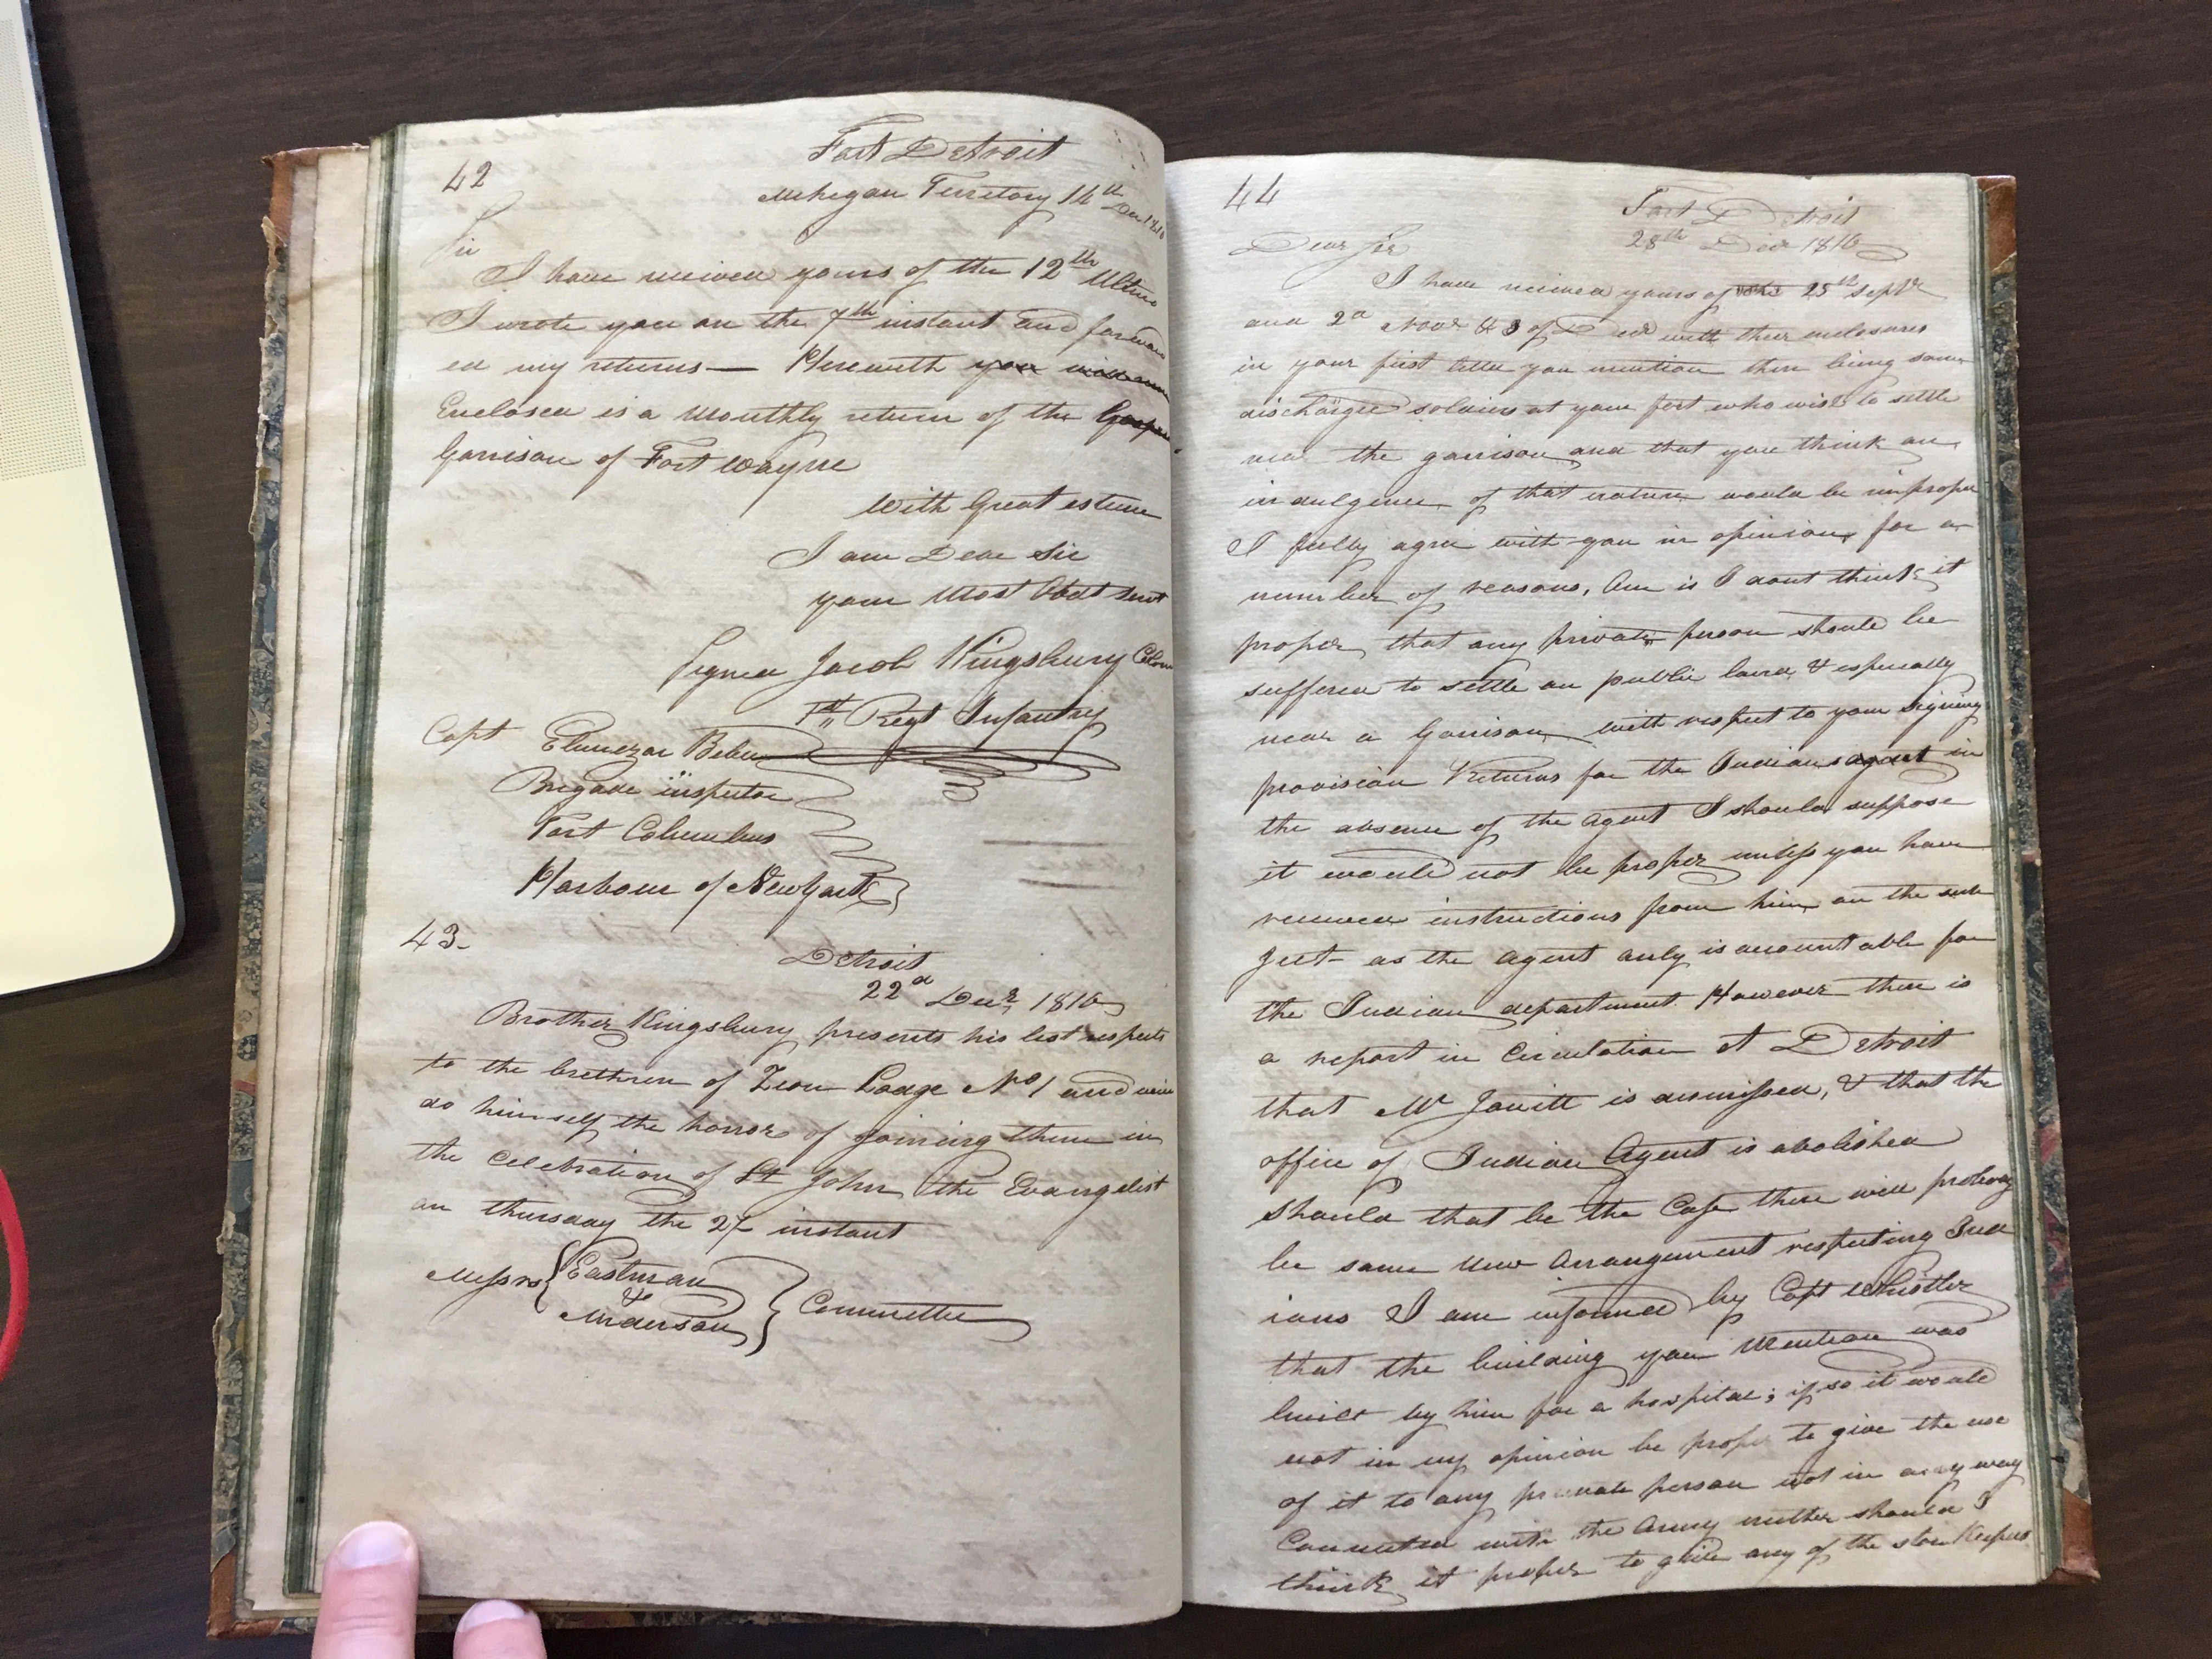 42
Fort Detroit
Michigan Territory 14th Decr 1810
Sir
I have received yours of the 12th Ultimo
I wrote you on the 7th instant and forward
ed my returns — Herewith you
Enclosed is a Monthly return of the
Garrison of Fort Wayne
With Great esteem
I am Dear Sir
your Most Obdt Servt
Signed Jacob Kingsbury Colonel
1st Regt Infantry
Capt Ebenezar Beebe
Brigade inspector
Fort Columbus
Harbour of New York
43-
Detroit
22d Decr 1810
Brother Kingsbury presents his best respects
to the brethren of Zion Lodge No 1 and will
do himself the honor of joining them in
the Celebration of St John the Evangelist
on thursday the 27 instant
Messrs Eastman
&
Anderson
Committee
44
Fort Detroit
28th Decr 1810
Dear Sir
I have received yours of the 25th Septr
and 2d Novr & 3 of Decr with their enclosures
in your first letter you mention there being some
discharged soldiers at your fort who wish to settle
near the garrison and that you think an
indulgence of that nature would be improper
I fully agree with you in opinion for a
number of reasons, One is I dont think it
proper that any private person should be
suffered to settle on public land & especially
near a Garrison with respect to your signing
provision Returns for the Indians agent in
the absence of the Agent I should suppose
it would not be proper unless you have
received instructions from him on the sub
ject - as the agent only is accountable for
the Indian department. However there is
a report in Circulation at Detroit
that Mr Jouitt is dismissed, & that the
office of Indian Agent is abolished
Should that be the Case there will probably
be some New Arrangement respecting Ind
ians I am informed by Capt Whistler
that the building you Mention was
built by him for a hospital; if so it would
not in my opinion be proper to give the use
of it to any private person not in any way
Connected with the Army neither should I
think it proper to give any of the store Keepers